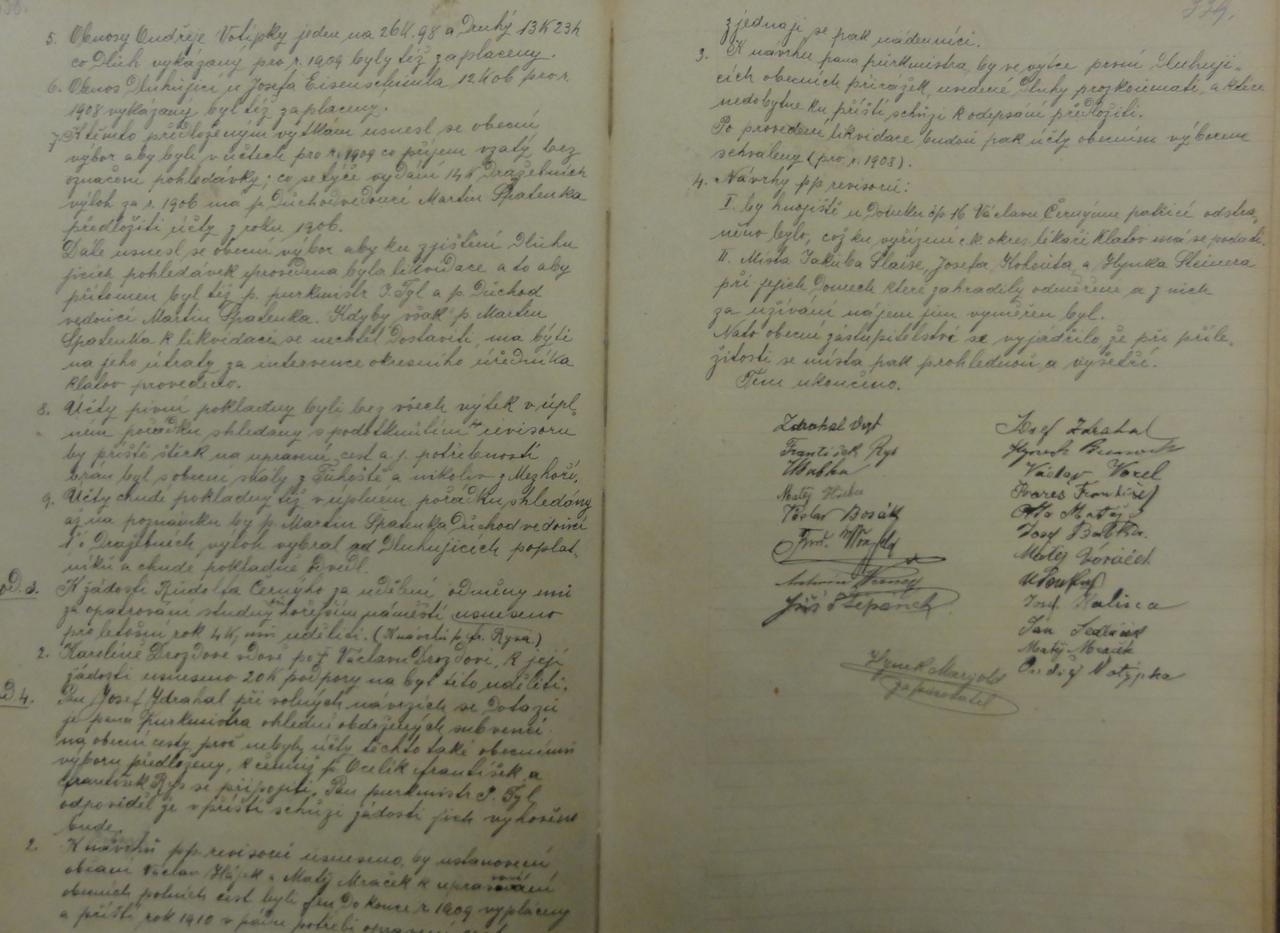 5. Obnosy Ondřeje Votipky jeden na 26 K. 98 a Druhý 13 K 23 h
co Dluh vykázaný pro r. 1909 byly též zaplaceny.
6. Obnos Dluhující u Josefa Eisenschimla 12 K 06 pro r.
1908 vykázaný byl též zaplacený.
7. K těmto předloženým výtkám usnesl se obecní
výbor aby byli v účtech pro r. 1909 co příjem vzaty bez
označení pohledávky; co se týče vydání 14 K Dražebních
výloh za r. 1906 má p. Důchodvedoucí Martin Špatenka
předložiti účty z roku 1906.
Dále usnesl se obecní výbor aby ku zjištění Dluhu
jících pohledávek provedena byla likvidace a to aby
přítomen byl též p. purkmistr J. Tyl a p. Důchod
vedoucí Martin Špatenka. Kdyby však p. Martin
Špatenka k likvidaci se nechtěl Dostaviti, má býti
na jeho útraty za intervence okresního úředníka
Klatov provedeno.
8. Účty pivní pokladny byli bez všech výtek v úpl-
ném pořádku shledány s podotknutím revisorů
by příště štěrk na upravení cest a j. potřebnosti
brán byl s obecní skály z Tuhoště a nikoliv z Mezhoří.
9. Účty chudé pokladny též v úplném pořádku shledány
až na poznámku by p. Martin Špatenka Důchod vedoucí
Dražebních výloh vybral od Dluhujících poplat-
níků a chudé pokladně
oD. 3. K žádosti Rudolfa Černýho za udělení odměny mu
za opatrování studny hořejším náměstí usneseno
pro letošní rok 4 K. mu uděliti. (K návrhu p. fr. Rysa.)
2. Karolíně Drozdové vdově po † Václavu Drozdovi, k její
žádosti usneseno 20 K podpory na byt této uděliti.
oD. 4. Pan Josef Zdrahal při volných návrzích se Dotazu
je pana purkmistra ohledně obdržených subvencí
na obecní cesty proč nebyly účty těchto také obecnímu
výboru předloženy, k čemuž p. Ocelík František a
František Rys se připojili. Pan purkmistr J. Tyl
odpověděl že v příští schůzi žádosti jich vyhověno
bude.
2. K návrhu pp. revisorů usneseno, by ustanovení
občané Václav Hájek a Matěj Mraček k upravování
obecních polních cest byli jen Do konce r. 1909 vypláceny
a příští rok 1910 v pádu potřeby
334.
zjednají se pak nádeníci.
3. K návrhu pana purkmistra, by ve výtce první Dluhují-
cích obecních přirážek usedené Dluhy prozkoumati, a které
nedobytné ku příští schůzi k odepsání předložiti.
Po provedení likvidace budou pak účty obecním výborem
schváleny (pro r. 1908).
4. Návrhy pp revisorů:
I. by hnojiště u Domku čp 16 Václavu Černýmu patřící odstra-
něno bylo, což ku vyřízení ck okres. lékaři Klatov má se podati.
II. Místa Jakuba Slaise, Josefa Kohouta, a Hynka Steinera
při jejich Domech které zahradily odměřené a z nich
za užívání nájem jim vyměřen byl.
Nato obecní zastupitelstvo se vyjádřilo že při příle-
žitosti se místa pak prohlednou a vyšetří.
Tím ukončeno.
Zdrahal Vojt
František Rys
Babka
Matěj
Václav Bosák
Jiří Štěpánek
Josef Zdrahal
Hynek
Václav Voxel
František
Matěj
Josef Babka
Matěj Voráček
Josef Kalina
Jan Sedláček
Matěj Mraček
Ondřej Votypka
Hynek
zapisovatel